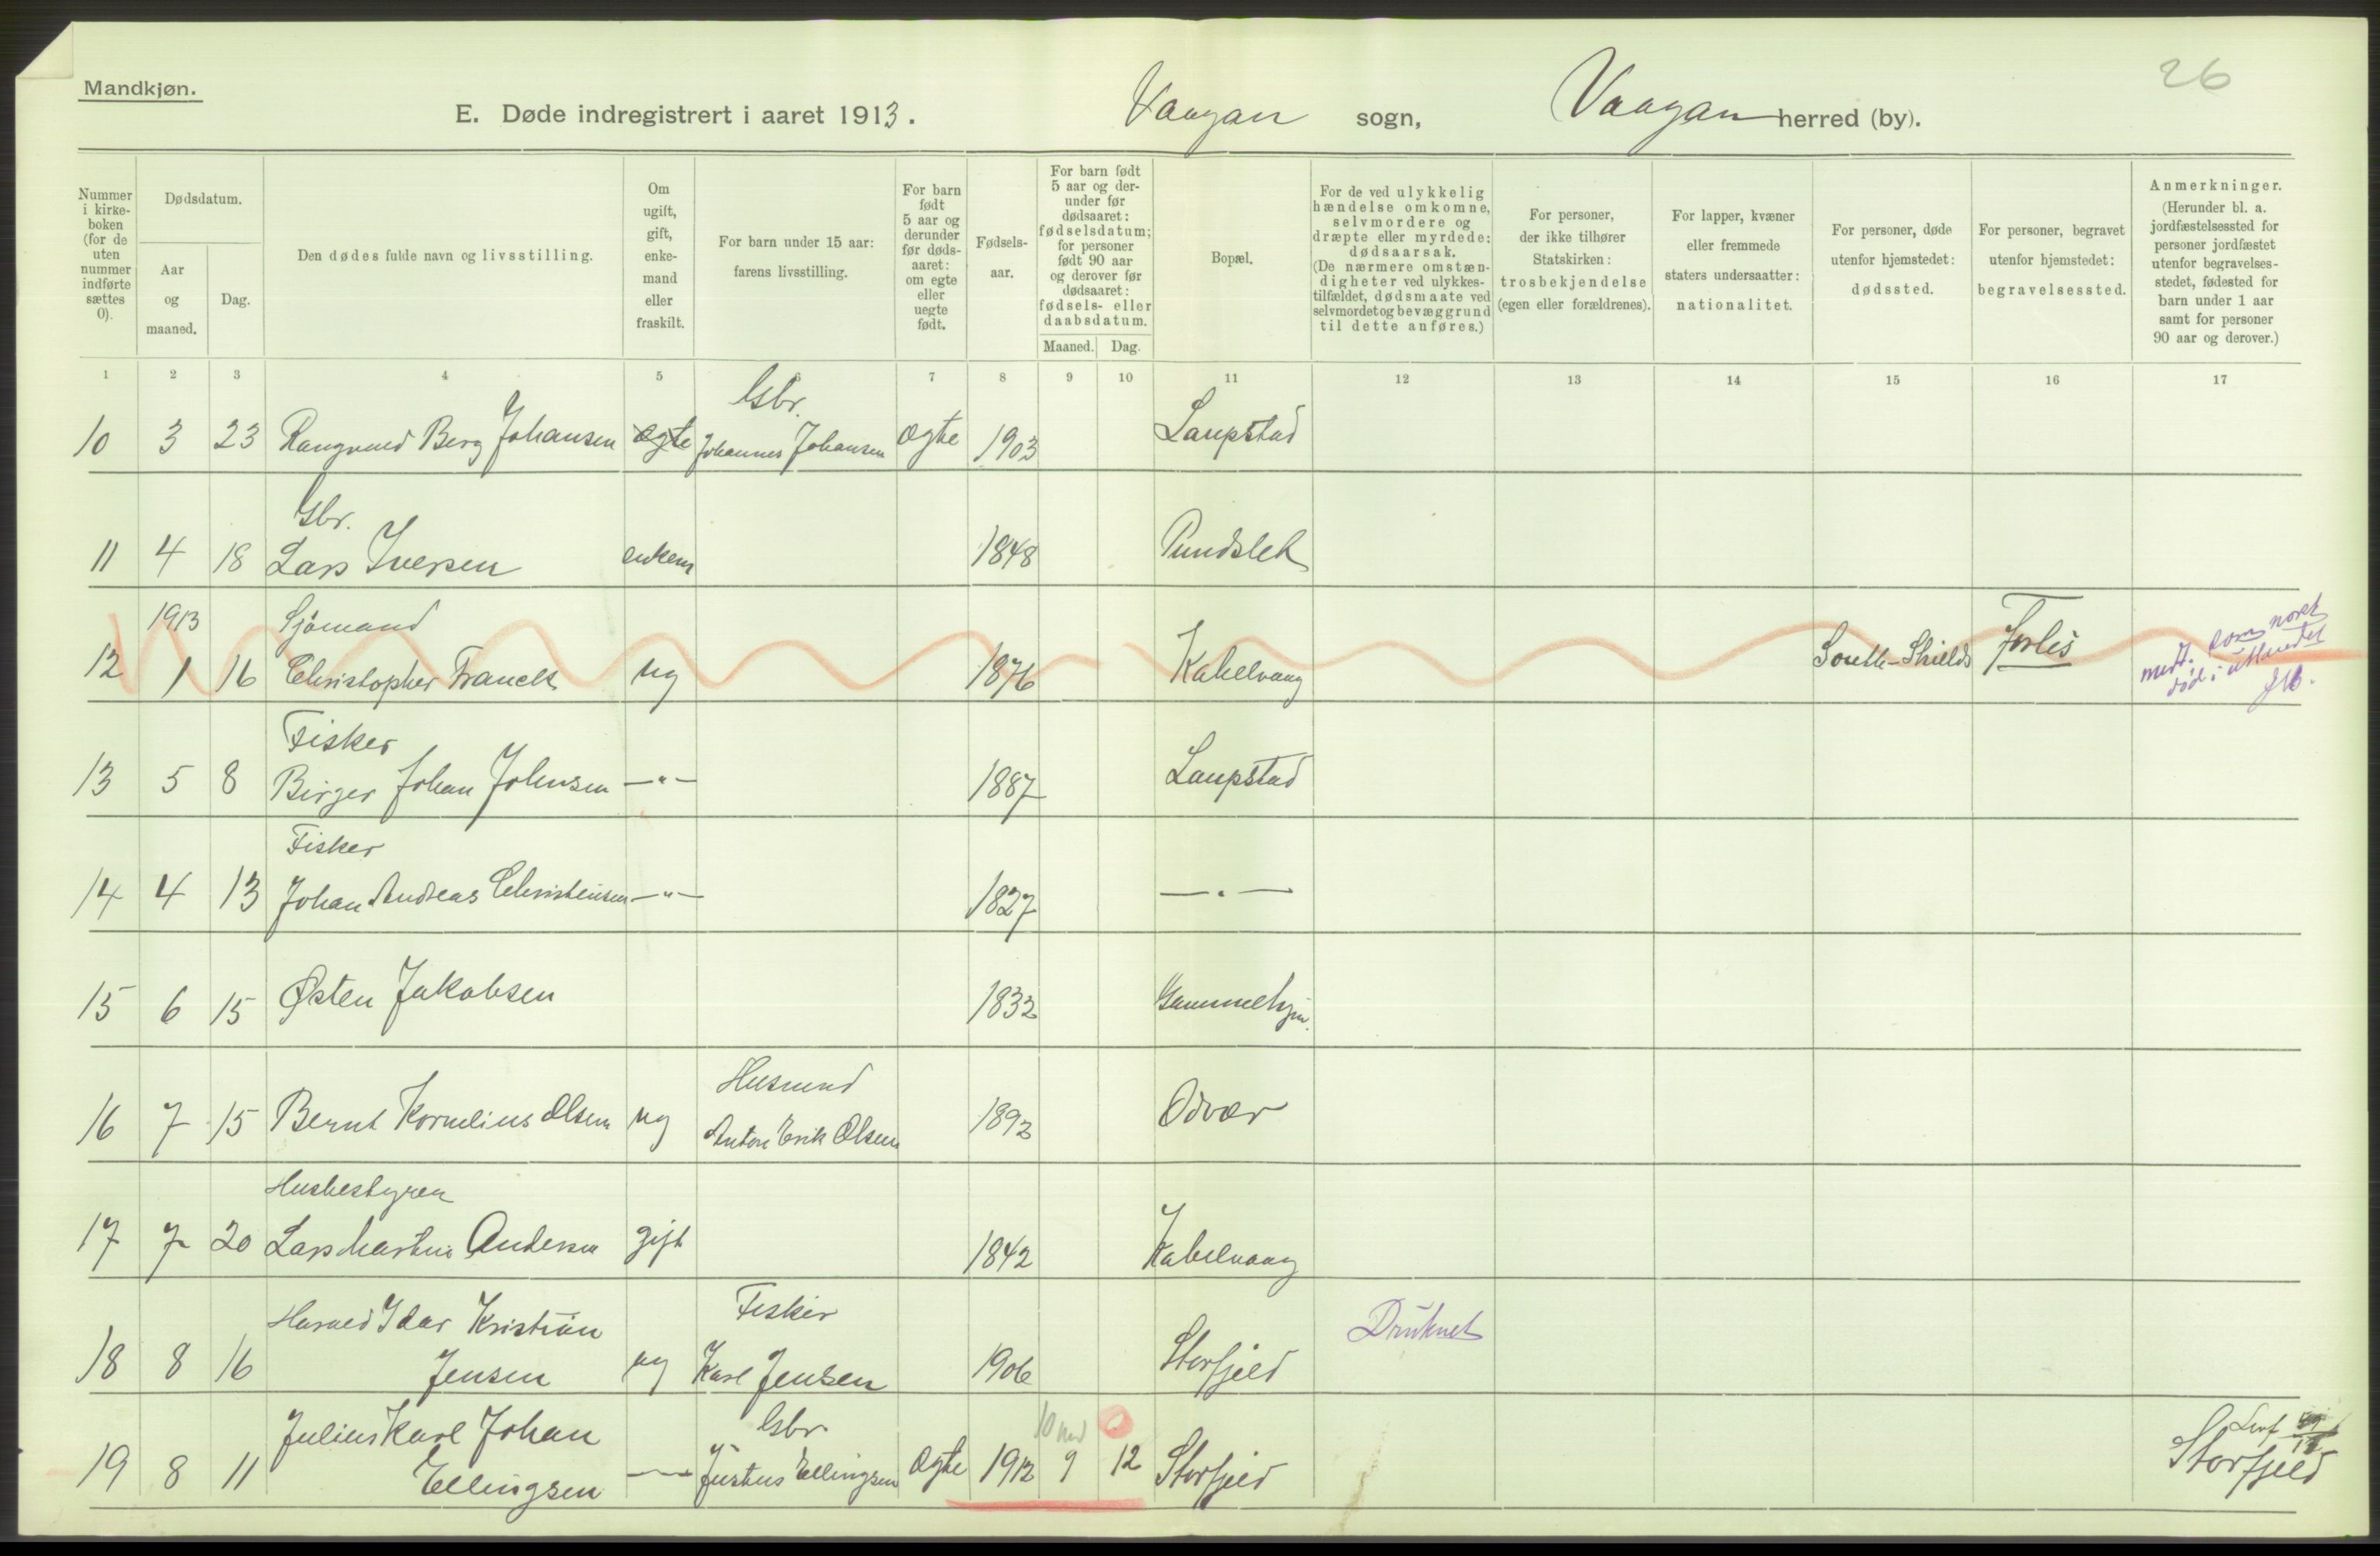 Mandkjøn.
26
E. Døde indregistrert i aaret 1913. Vaagan sogn, Vaagan herred (by).
Nummer i kirke-boken (for de uten nummer indførte sættes 0).
Dødsdatum.
Aar og maaned.
Dag.
Den dødes fulde navn og livsstilling.
Om ugift, gift, enke-mand eller fraskilt.
For barn under 15 aar: farens livsstilling.
For barn født 5 aar og derunder før døds-aaret: om egte eller uegte født.
Fødsels-aar.
For barn født 5 aar og der-under før dødsaaret: fødselsdatum; for personer født 90 aar og derover før dødsaaret: fødsels- eller daabsdatum.
Maaned.
Dag.
Bopæl.
For de ved ulykkelig hændelse omkomne, selvmordere og dræpte eller myrdede: dødsaarsak. (De nærmere omstæn-digheter ved ulykkes-tilfældet, dødsmaate ved selvmordet og bevæggrund til dette anføres.)
For personer, der ikke tilhører Statskirken: trosbekjendelse (egen eller forældrenes).
For lapper, kvæner eller fremmede staters undersaatter: nationalitet.
For personer, døde utenfor hjemstedet: dødssted.
For personer, begravet utenfor hjemstedet: begravelsessted.
Anmerkninger. (Herunder bl. a. jordfæstelsessted for personer jordfæstet utenfor begravelses-stedet, fødested for barn under 1 aar samt for personer 90 aar og derover.)
1 2 3 4 5 6 7 8 9 10 11 12 13 14 15 16 17
Gbr.
10 3 23 Berg Johansen ægte Johannes Johansen ægte 1903 Laupstad
Gbr.
11 4 18 Lars Iversen enkem 1848 Pundslet
1913 Sjömand
12 1 16 Christopher Franck ug 1876 Kabelvaag South-Shields medt. som norsk
død i utlandet
Fisker
13 5 8 Birger Johan Johnsen —"— 1887 Laupstad
Fisker
14 4 13 Johan Andreas Christensen —"— 1827 —"—
15 6 15 Østen Jakobsen 1832 Gammelhjm.
Husmand
16 7 15 Bernt Kornelius Olsen ug Anton Erik Olsen 1892 Odvær
Husbestyrer
17 7 20 Lars Martin Andersen gift 1842 Kabelvaag
Harald Idar Kristian Fisker Druknet
18 8 16 Jensen ug Karl Jensen 1906 Storfjeld
Julius Karl Johan Gbr. 10 md 0
19 8 11 Ellingsen —"— Justus Ellingsen ægte 1912 9 12 Storfjeld Storfjeld